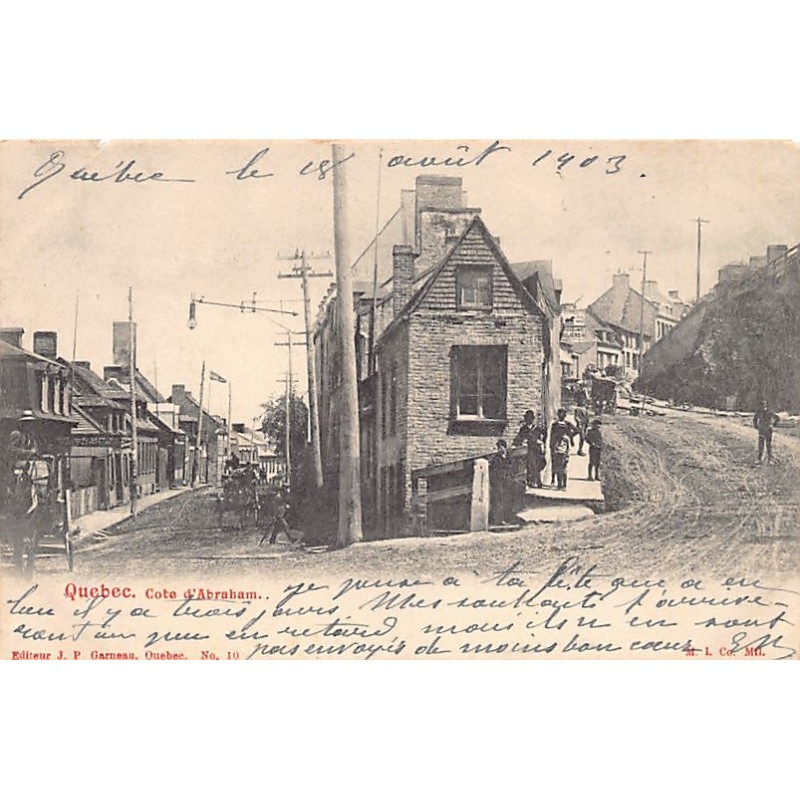 Québec le 18 août 1903.
Quebec. Cote d'Abraham.. je pense à ta fête que a en
lieu il y a trois jours, Mes souhaits t'arrive-
ront un peu en retard mais ils n'en sont
pas envoyés de moins bon cœur
Editeur J. P. Garneau, Quebec. No. 10
M. I. Co. Mtl.